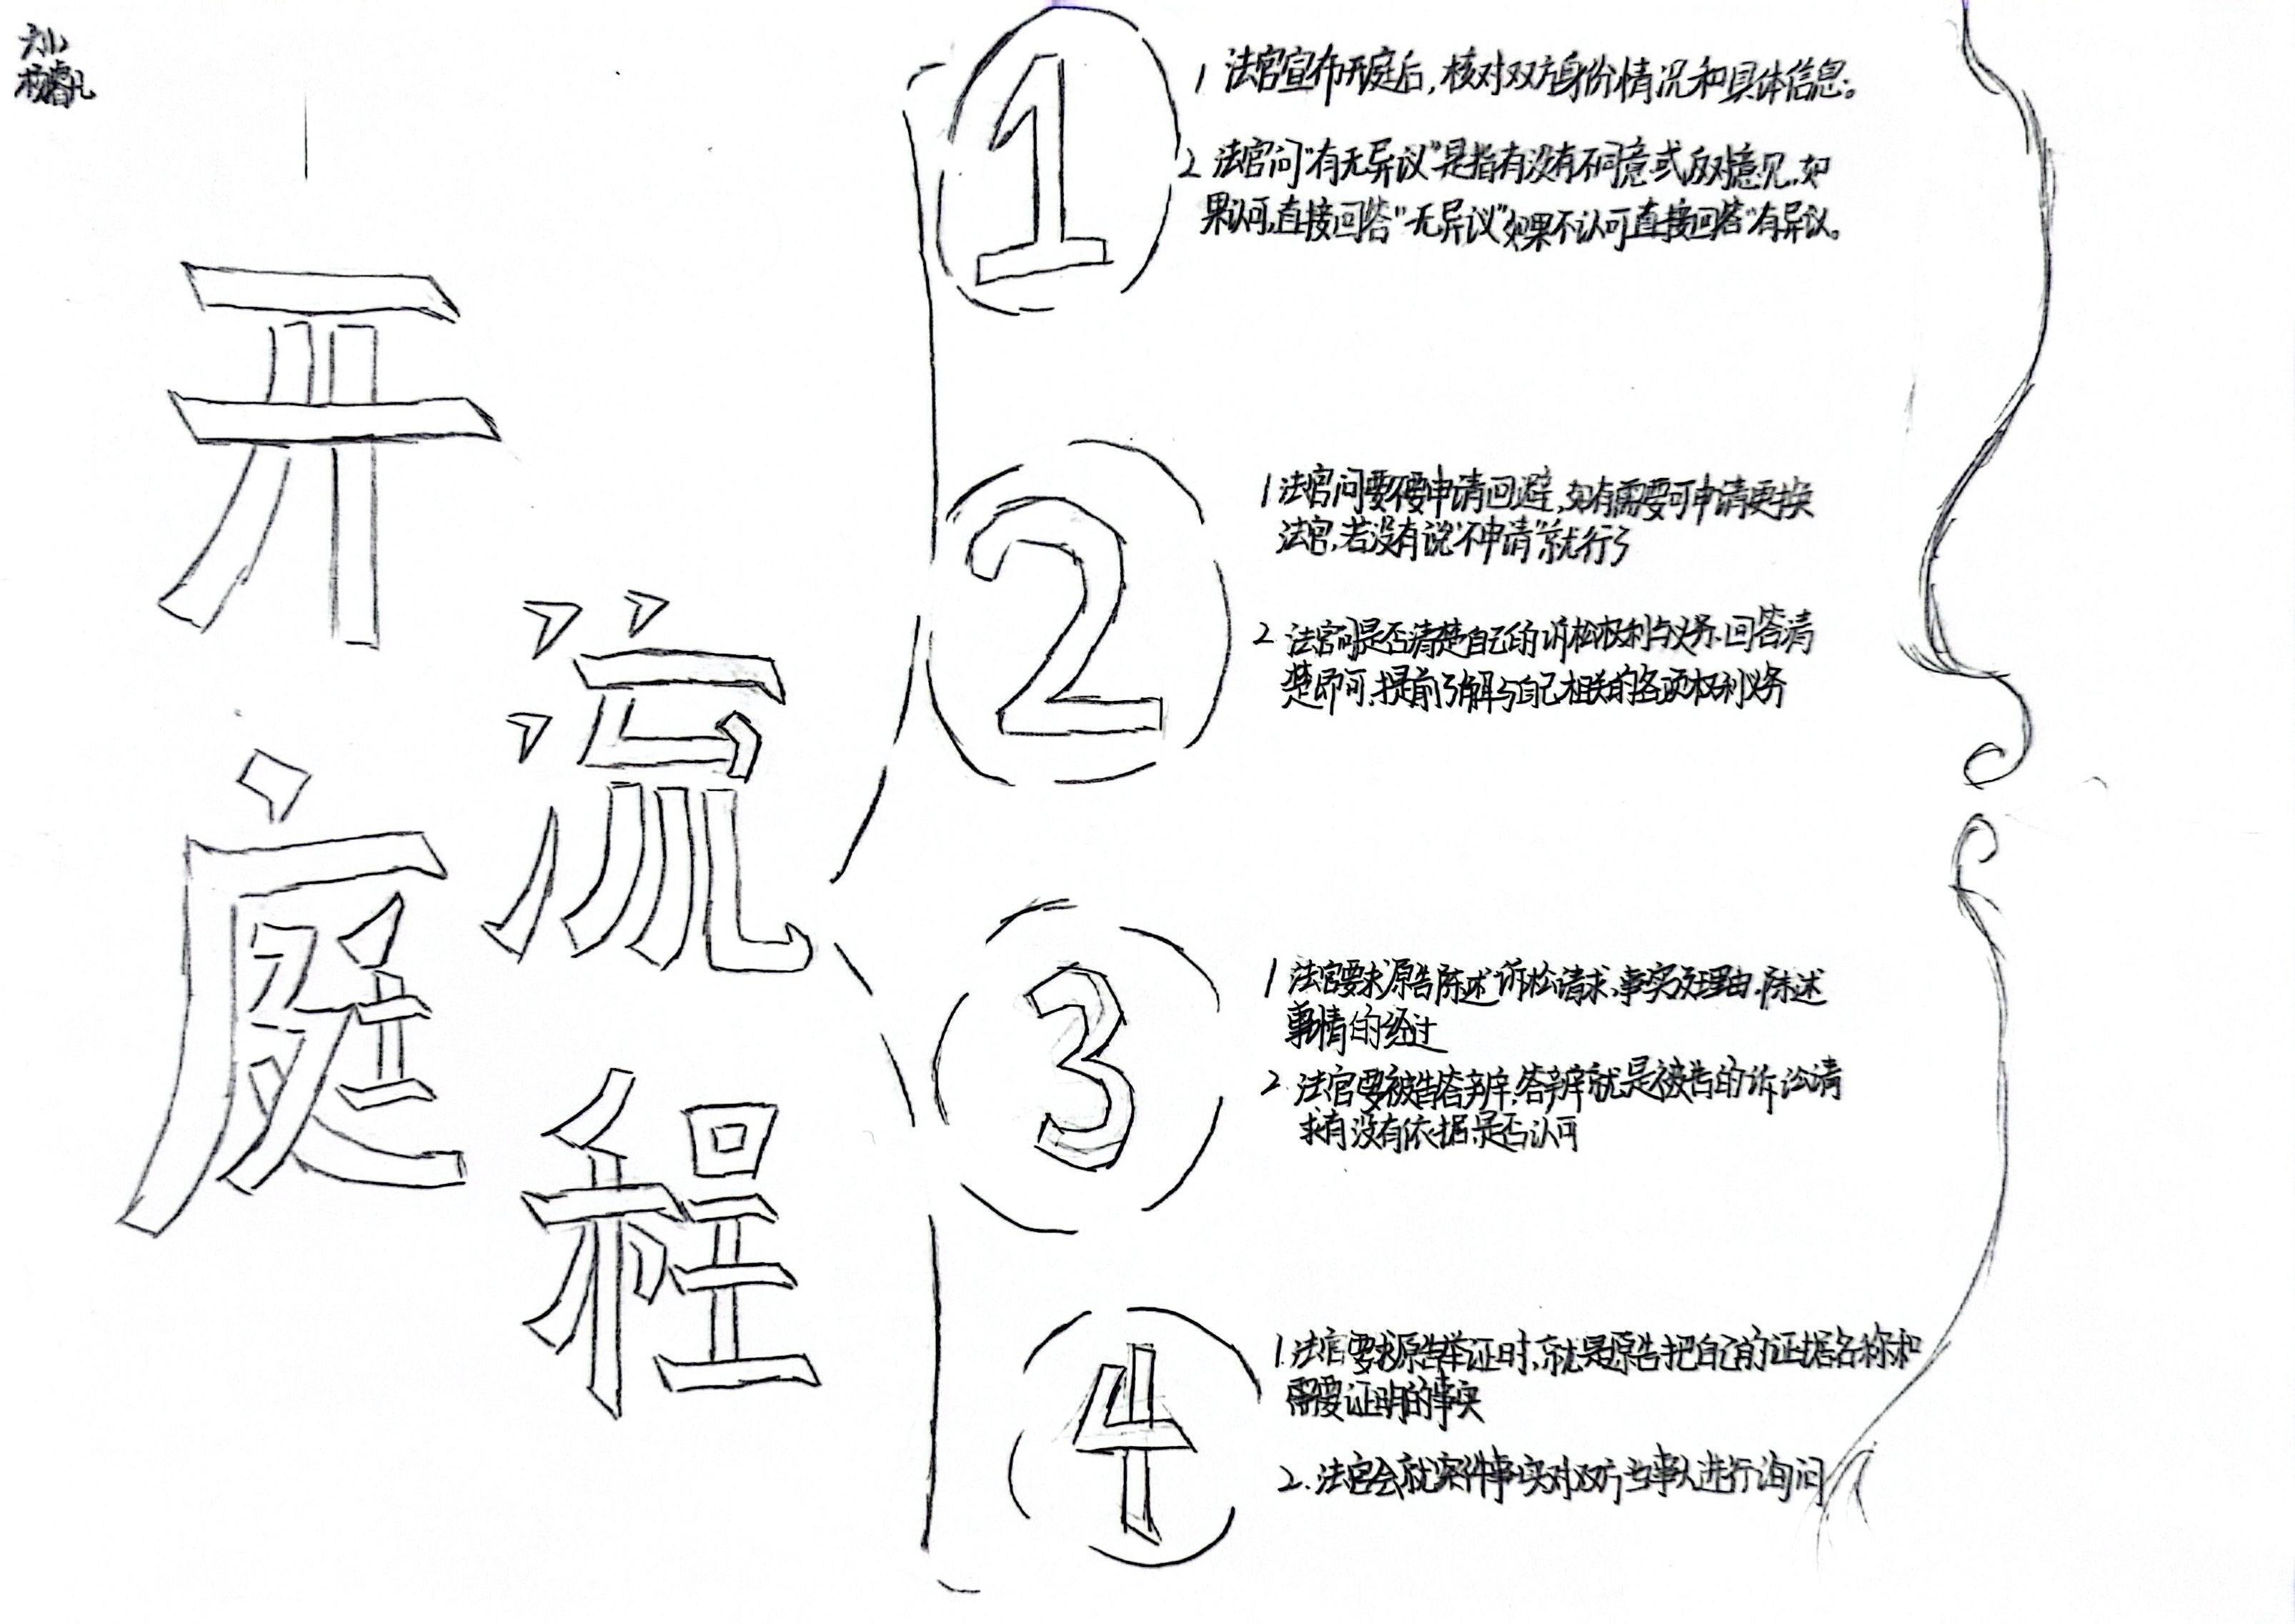 开庭
流程
1
1 法官宣布开庭后,核对双方身份情况和具体信息。
2 法官问"有无异议"是指有没有不同意或反对意见,如
果认可,直接回答"无异议"如果不认可直接回答"有异议。
2
1 法官问要不要申请回避,如有需要可申请更换
法官,若没有说"不申请"就行了
2 法官问是否清楚自己的诉讼权利与义务.回答清
楚即可,提前了解与自己相关的各项权利义务
3
1 法官要求原告陈述诉讼请求、事实及理由.陈述
事情的经过
2. 法官要被告答辩,答辩就是被告的诉讼请
求有没有依据,是否认可
4
1.法官要求原告举证时,就是原告把自己的证据名称和
需要证明的事实
2.法官会就案件事实对双方当事人进行询问